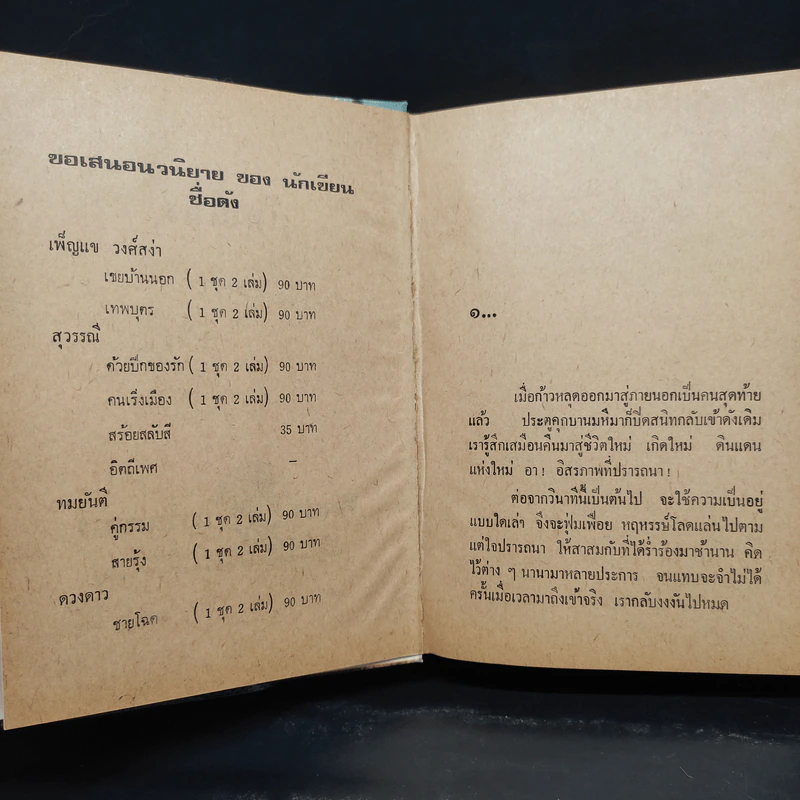 ขอเสนอนวนิยาย ของ นักเขียน
ชื่อดัง
เพ็ญแข วงศ์สง่า
เขยบ้านนอก ( 1 ชุด 2 เล่ม) 90 บาท
เทพบุตร ( 1 ชุด 2 เล่ม) 90 บาท
สุวรรณี
ด้วยปีกของรัก ( 1 ชุด 2 เล่ม) 90 บาท
คนเริงเมือง ( 1 ชุด 2 เล่ม) 90 บาท
สร้อยสลับสี 35 บาท
อิตถีเพศ –
ทมยันตี
คู่กรรม ( 1 ชุด 2 เล่ม) 90 บาท
สายรุ้ง ( 1 ชุด 2 เล่ม) 90 บาท
ดวงดาว
ชายโฉด ( 1 ชุด 2 เล่ม) 90 บาท
๑...
เมื่อก้าวหลุดออกมาสู่ภายนอกเป็นคนสุดท้าย
แล้ว ประตูคุกบานมหึมาก็ปิดสนิทกลับเข้าดังเดิม
เรารู้สึกเสมือนคืนมาสู่ชีวิตใหม่ เกิดใหม่ ดินแดน
แห่งใหม่ อา! อิสรภาพที่ปรารถนา!
ต่อจากวินาทีนี้เป็นต้นไป จะใช้ความเป็นอยู่
แบบใดเล่า จึงจะฟุ่มเฟือย หฤหรรษ์โลดแล่นไปตาม
แต่ใจปรารถนา ให้สาสมกับที่ได้ร่ำร้องมาช้านาน คิด
ไว้ต่าง ๆ นานามาหลายประการ จนแทบจะจำไม่ได้
ครั้นเมื่อเวลามาถึงเข้าจริง เรากลับงงงันไปหมด